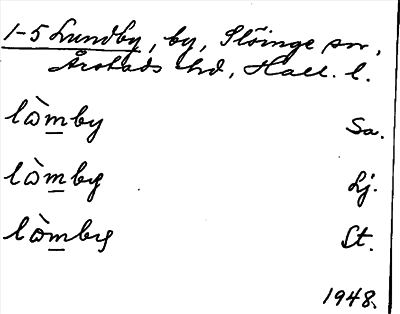 1-5 Lundby, by, Slöinge sn,
Årstads hd, Hall. l.
lò̀mby Sa.
lò̀mby Lj.
lò̀mby St.
1948.